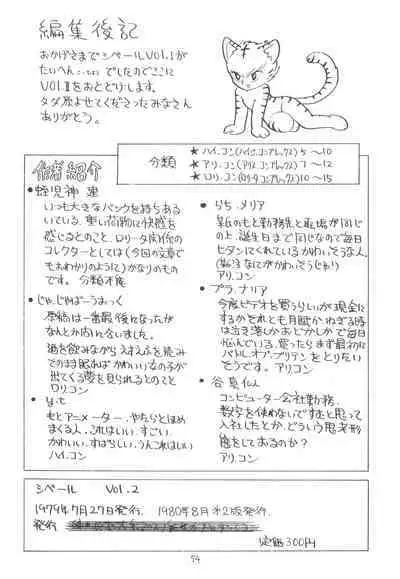 編集後記
おかげさまでシベールVOL.1が
たいへん でしたのでここに
VOL.2をおとどけします。
タダ見させてくださったみなさん
ありがとう。
作者紹介
分類
★ ハイ.コン(ハイジ.コンプレックス) 5〜10
★ アリ.コン(アリス コンプレックス) 7〜12
★ ロリ.コン(ロリータコンプレックス) 10〜15
● 蛭児神 建
いつも大きなバックを持ちある
いている。重い荷物に快感を
感じるとのこと。ロリータ関係の
コレクターとしては(今回の文章で
もおわかりのように)かなりのもの
です。 分類不能
● じゃ.じゃぼーうまっく
原稿は一番最後になったが
なんとか間に合いました。
酒を飲みながら を読み
そのまま眠ればかわいい女の子が
出てくる夢を見られるとのこと
ロリコン
●
もとアニメーター.やたらとほめ
まくる人.これはいい.すごい.
かわいい.すばらしい.うんこれはいい
ハイ.コン
● らち メリア
某 のもと勤務先と 場が同じ
の上.誕生日まで同じなので毎日
ヒダンでくれているかわいそうな人
アリ.コン
● プラ.ナリア
今度ビデオを買うらしいが現金に
するかそれとも月賦か ぎる時
は泣き落しか おどしかで毎日
悩んでいる。買ったらまず最初に
バトル.オブ.ブリテンをとりたい
そうです。アリコン
● 谷
コンピューター会社勤務.
数字を使わないですむと思って
入社したとか.どういう思考形
態をしてあるのか?
アリ.コン
シベール Vol.2
1979年7月27日発行. 1980年8月 第2版発行.
発行
定価300円
54